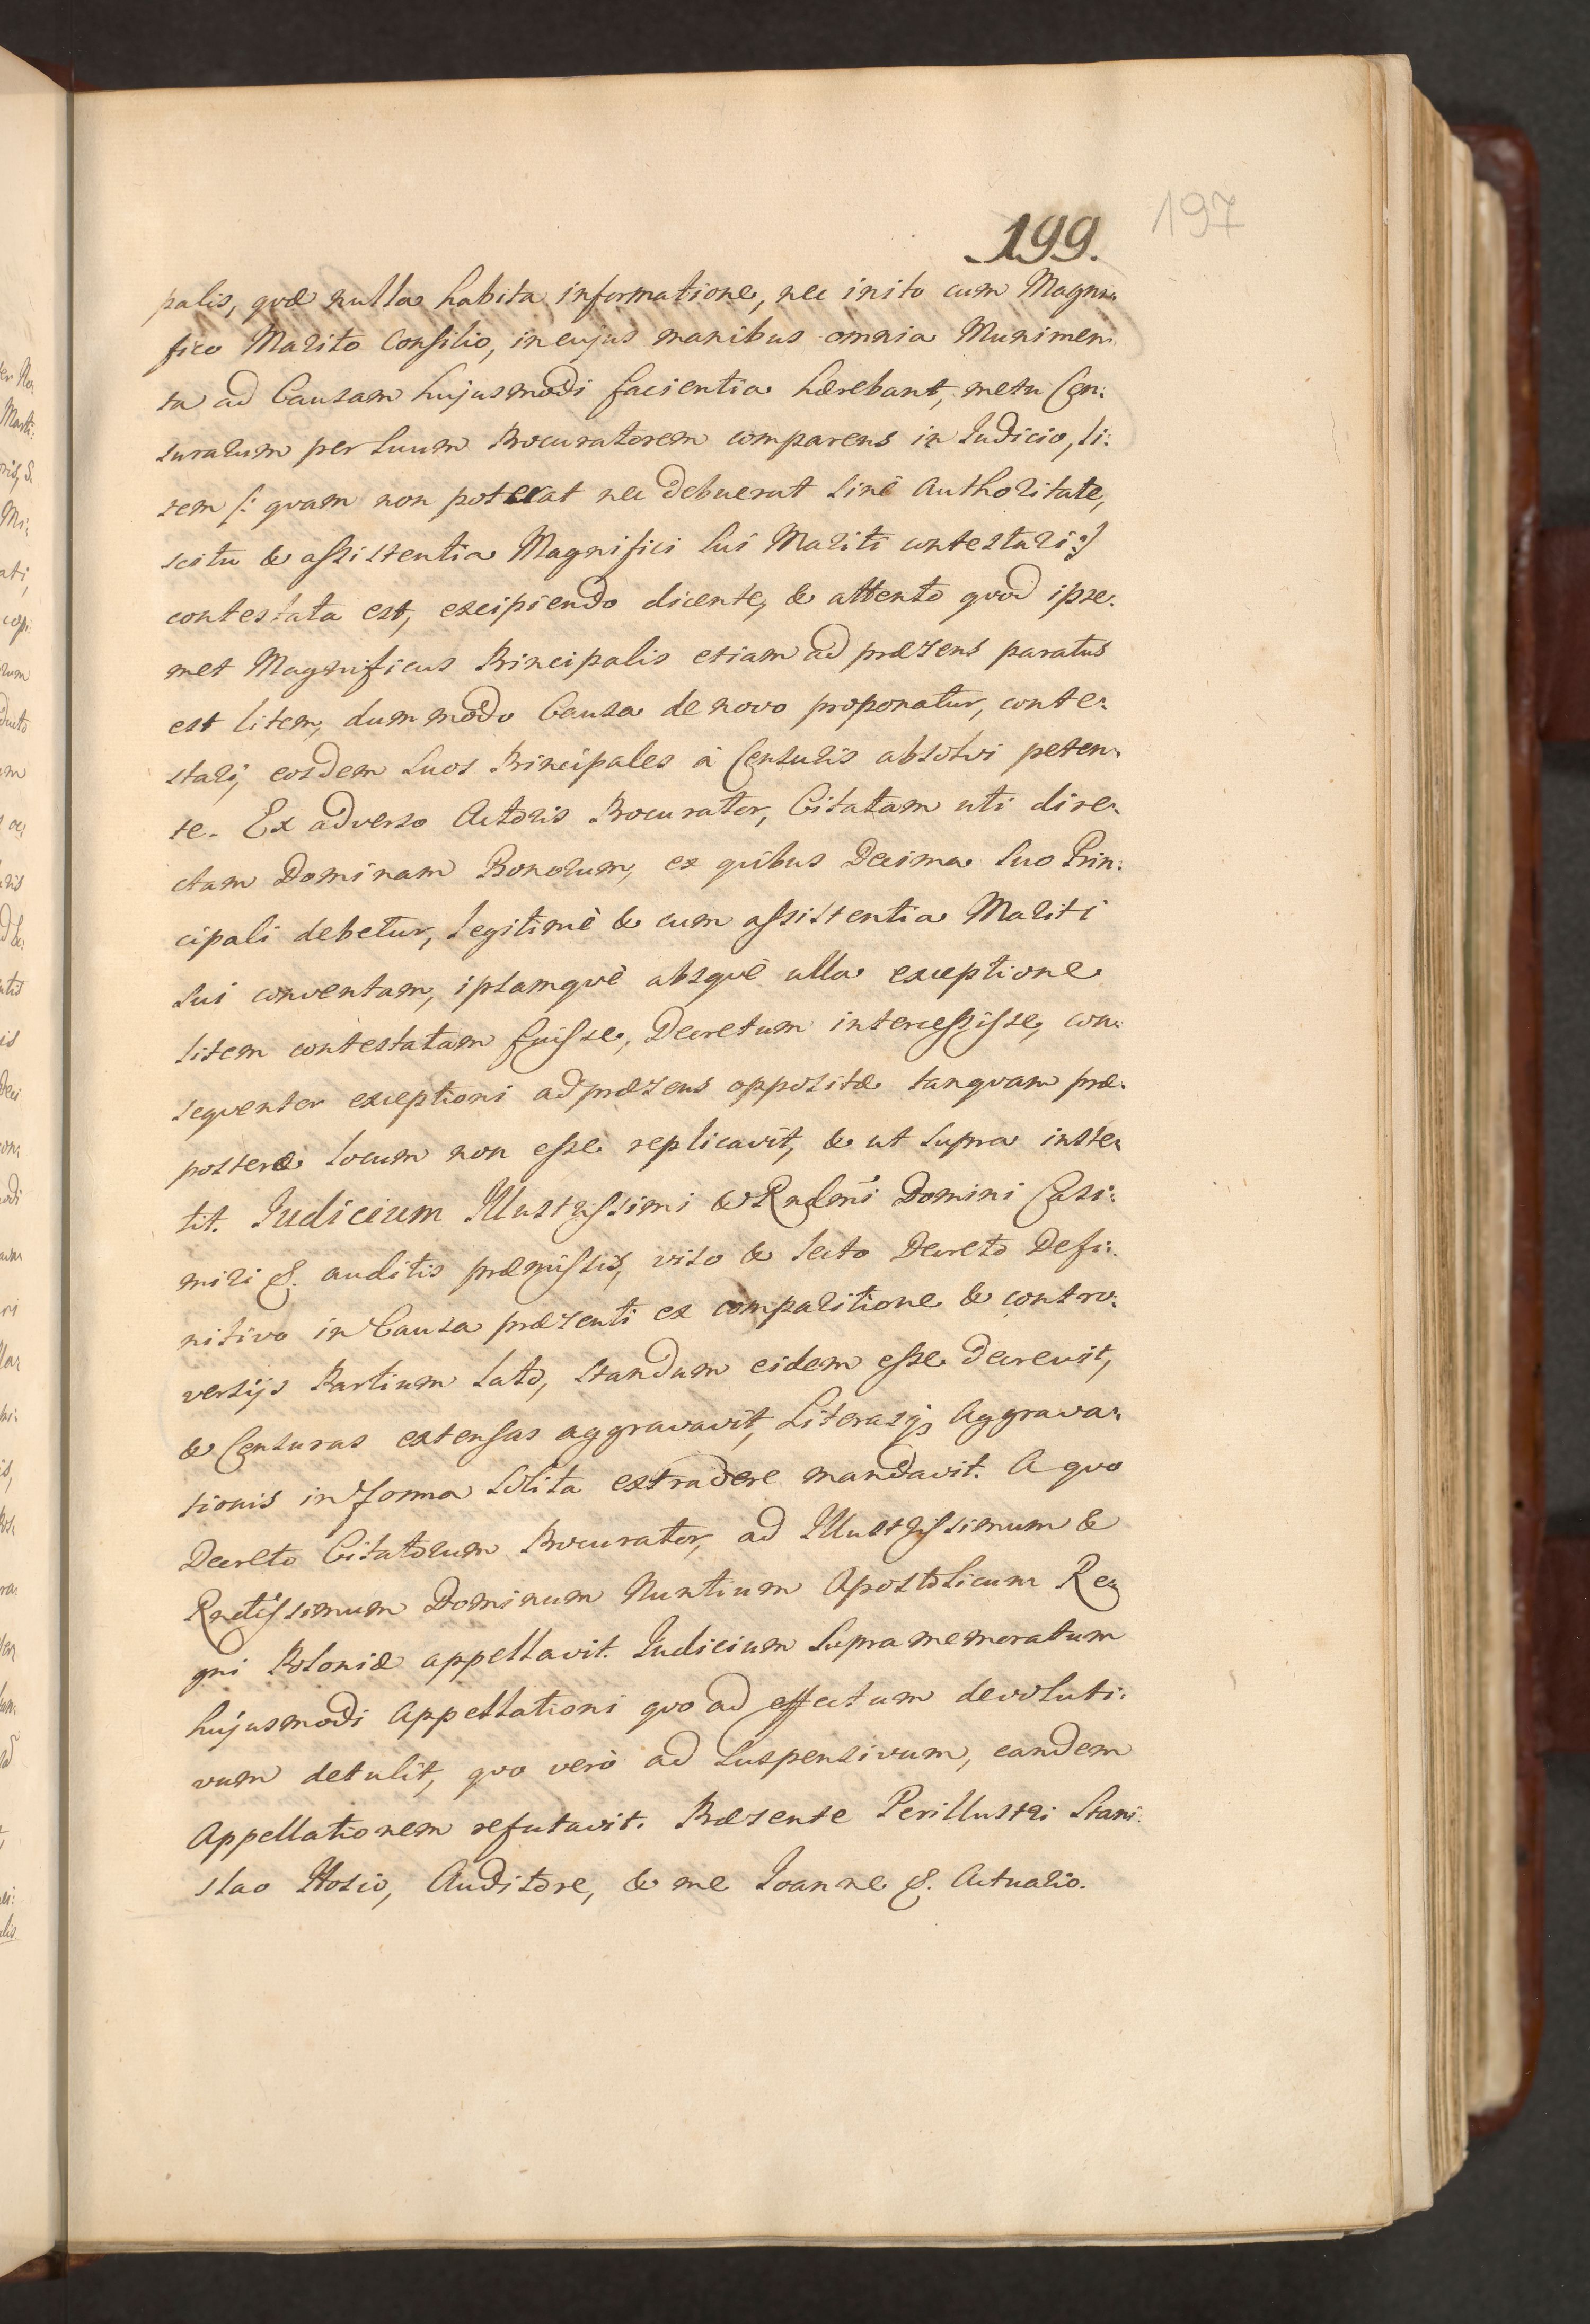 199. 197
palis, quæ nulla habita informatione, nec inito cum Magni:
fico Marito Consilio, in cujus manibus omnia Munimen:
ta ad Causam hujusmodi facientia hærebant, metu Cen:
surarum per suum Procuratorem comparens in Judicio, li:
tem /: quam non poterat nec debuerat sinè Authoritate,
scitu & assistentia Magnifici sui Mariti contestari :/
contestata est, excipiendo dicente, & attento quod ipse:
met Magnificus Principalis etiam ad præsens paratus
est litem, dummodo Causa de novo proponatur, conte:
stari, eosdem suos Principales à Censuris absolvi peten:
te. Ex adverso Actoris Procurator, Citatam uti dire:
ctam Dominam Bonorum, ex quibus Decima suo Prin:
cipali debetur, legitimè & cum assistentia Mariti
sui conventam, ipsamquè absquè ulla exceptione
litem contestatam fuisse, Decretum intercessisse, con:
sequenter exceptioni ad præsens oppositæ tanquam præ:
posteræ locum non esse replicavit, & ut supra inste:
tit. Judicium Illustrissimi & Rndmi Domini Casi:
miri &. auditis præmissis, viso & lecto Decreto Defi:
nitivo in Causa præsenti ex comparitione & contro:
versijs Partium lato, standum eidem esse decrevit,
& Censuras extensas aggravavit, Literasq; Aggrava:
tionis in forma solita extradere mandavit. A quo
Decreto Citatorum Procurator, ad Illustrissimum &
Rndissimum Dominum Nuntium Apostolicum Re:
gni Poloniæ appellavit. Judicium supramemoratum
hujusmodi Appellationi quo ad effectum devoluti:
vum detulit, quo verò ad suspensivum, eandem
Appellationem refutavit. Præsente Perillustri Stani:
slao Hosio, Auditore, & me Joanne &. Actuario.